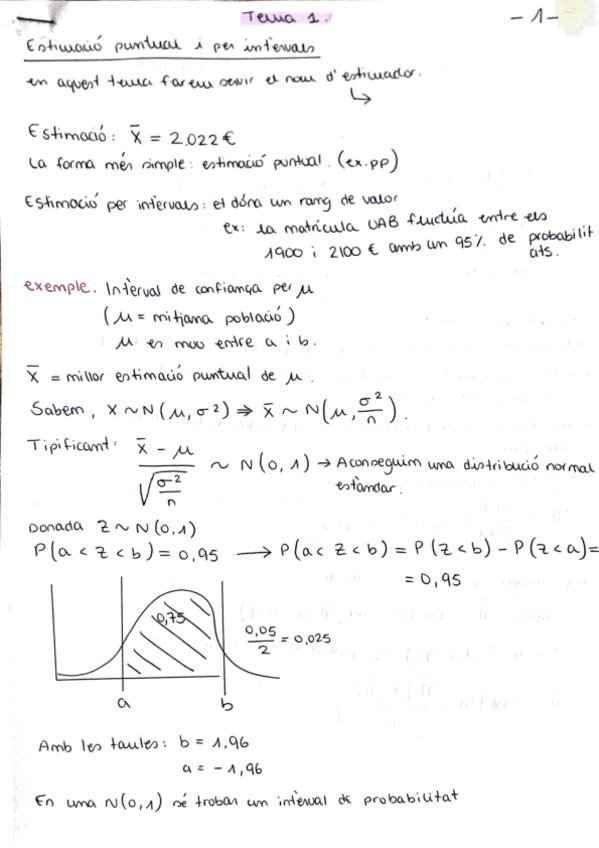 Tema 1.
- 1 -
Estimació puntual i per intervals
en aquest tema farem servir el nom d'estimador.
↳
Estimació: X̄ = 2.022 €
La forma més simple: estimació puntual. (ex.pp)
Estimació per intervals: et dóna un rang de valor
ex: la matrícula UAB fluctúa entre els
1900 i 2100 € amb un 95% de probabilit
ats.
exemple. Interval de confiança per μ
(μ = mitjana població)
μ es mou entre a i b.
X̄ = millor estimació puntual de μ.
Sabem, X ~ N(μ, σ²) ⇒ X̄ ~ N(μ, σ²/n).
Tipificant: (X̄ - μ) / √(σ²/n) ~ N(0,1) → Aconseguim una distribució normal
estàndar.
Donada Z ~ N(0,1)
P(a < Z < b) = 0,95 → P(a < Z < b) = P(Z < b) - P(Z < a) =
= 0,95
0,75
0,05/2 = 0,025
a b
Amb les taules: b = 1,96
a = - 1,96
En una N(0,1) sé trobar un interval de probabilitat